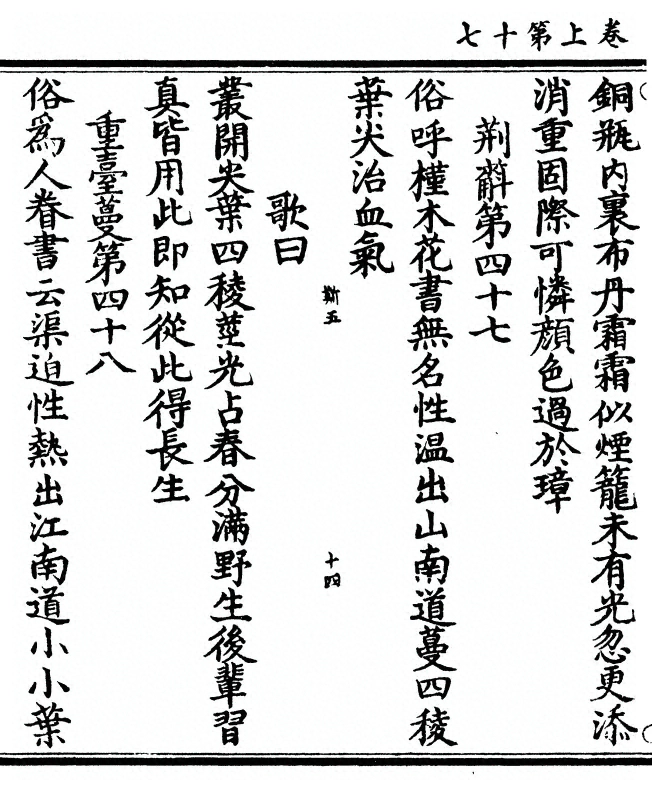 卷上第十七
銅瓶内裏布丹霜霜似煙籠未有光忽更添
消重固際可憐顔色過於璋
荆 第四十七
俗呼槿木花書無名性温出山南道蔓四稜
葉尖治血氣
斯五
十四
歌曰
叢開尖葉四稜莖光占春分滿野生後輩習
真皆用此即知從此得長生
重臺蔓第四十八
俗爲人眷書云渠迫性熱出江南道小小葉